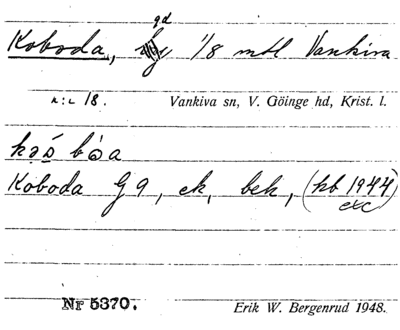 gd
Koboda, 1/8 mtl Vankiva
n:r 18. Vankiva sn, V. Göinge hd, Krist. l.
Koboda G9, ek, bek, (kb 1944
exc
Nr 5370. Erik W. Bergenrud 1948.